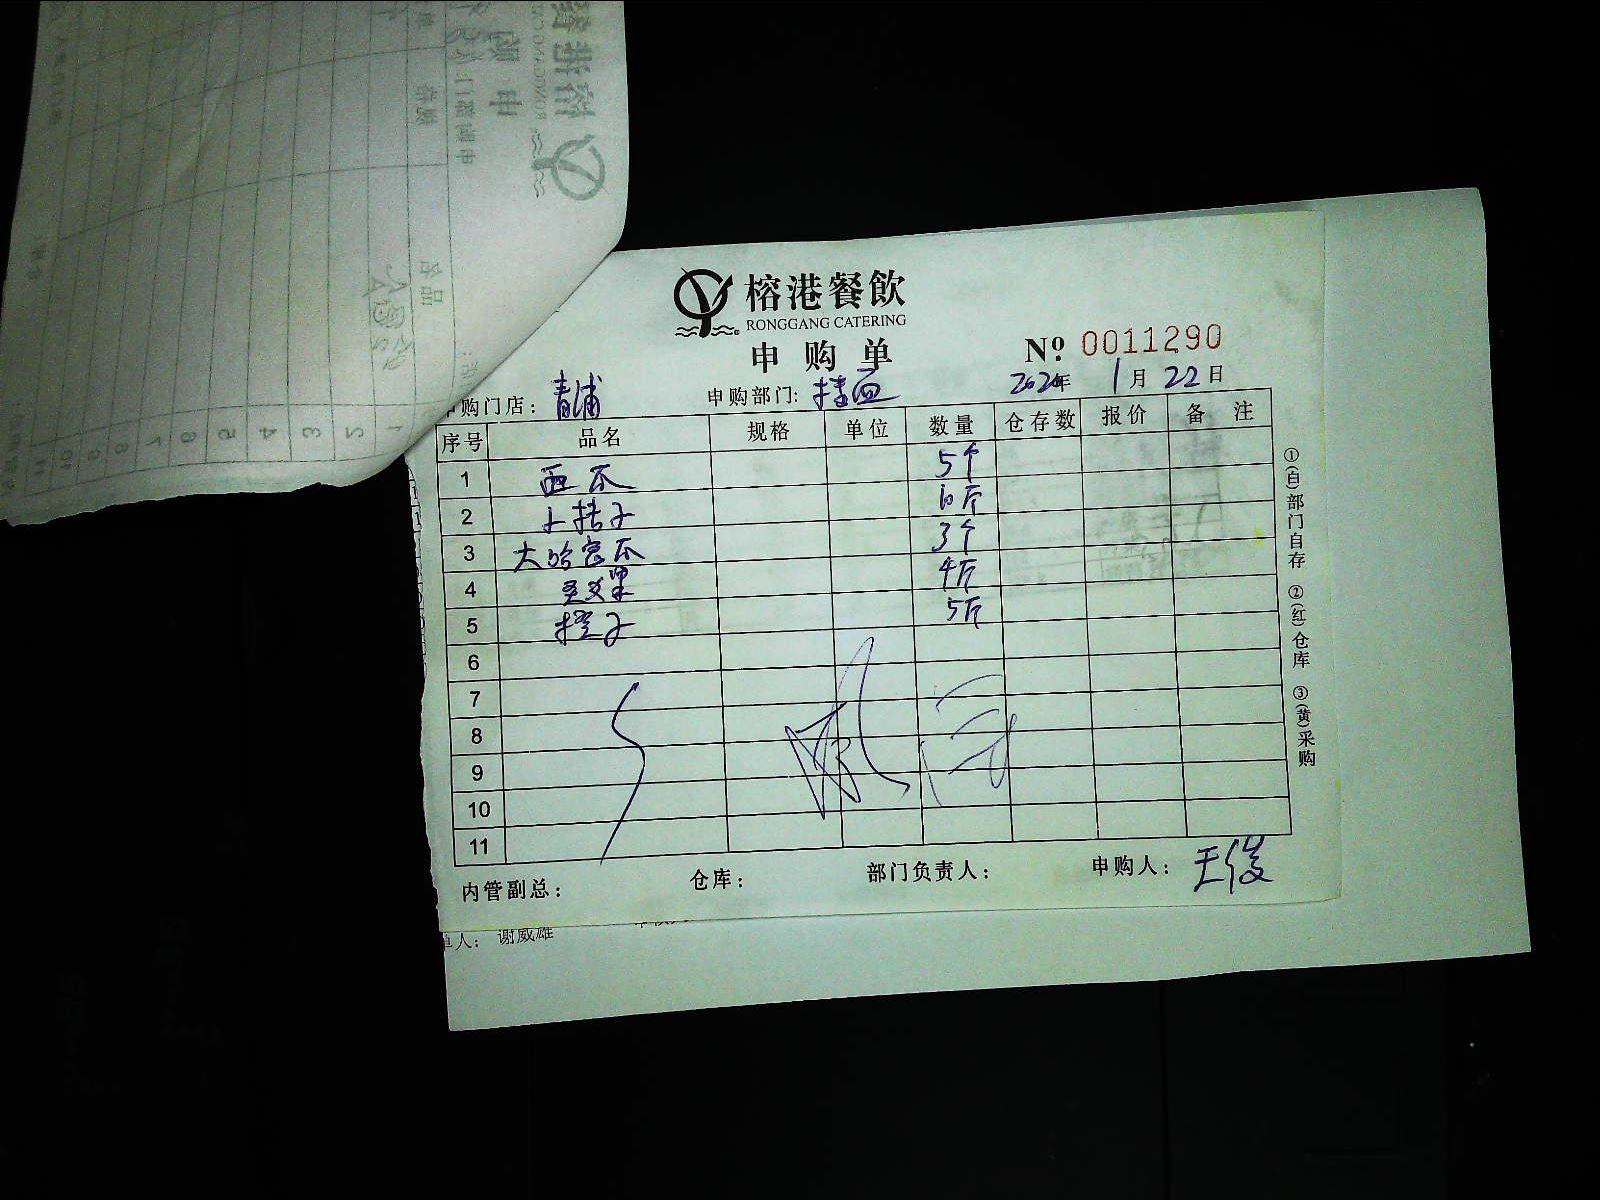 榕港餐飲
RONGGANG CATERING
申购单
Nº: 0011290
申购门店: 青浦 申购部门: 2020年 1月 22日
序号 品名 规格 单位 数量 仓存数 报价 备注
1 西瓜 5个
2 小桔子 10斤
3 大哈密瓜 3个
4 火龙果 4斤
5 橙子 5斤
6
7
8
9
10
11
内管副总: 仓库: 部门负责人: 申购人: 王俊
①(白)部门自存 ②(红)仓库 ③(黄)采购
单人: 谢威雄